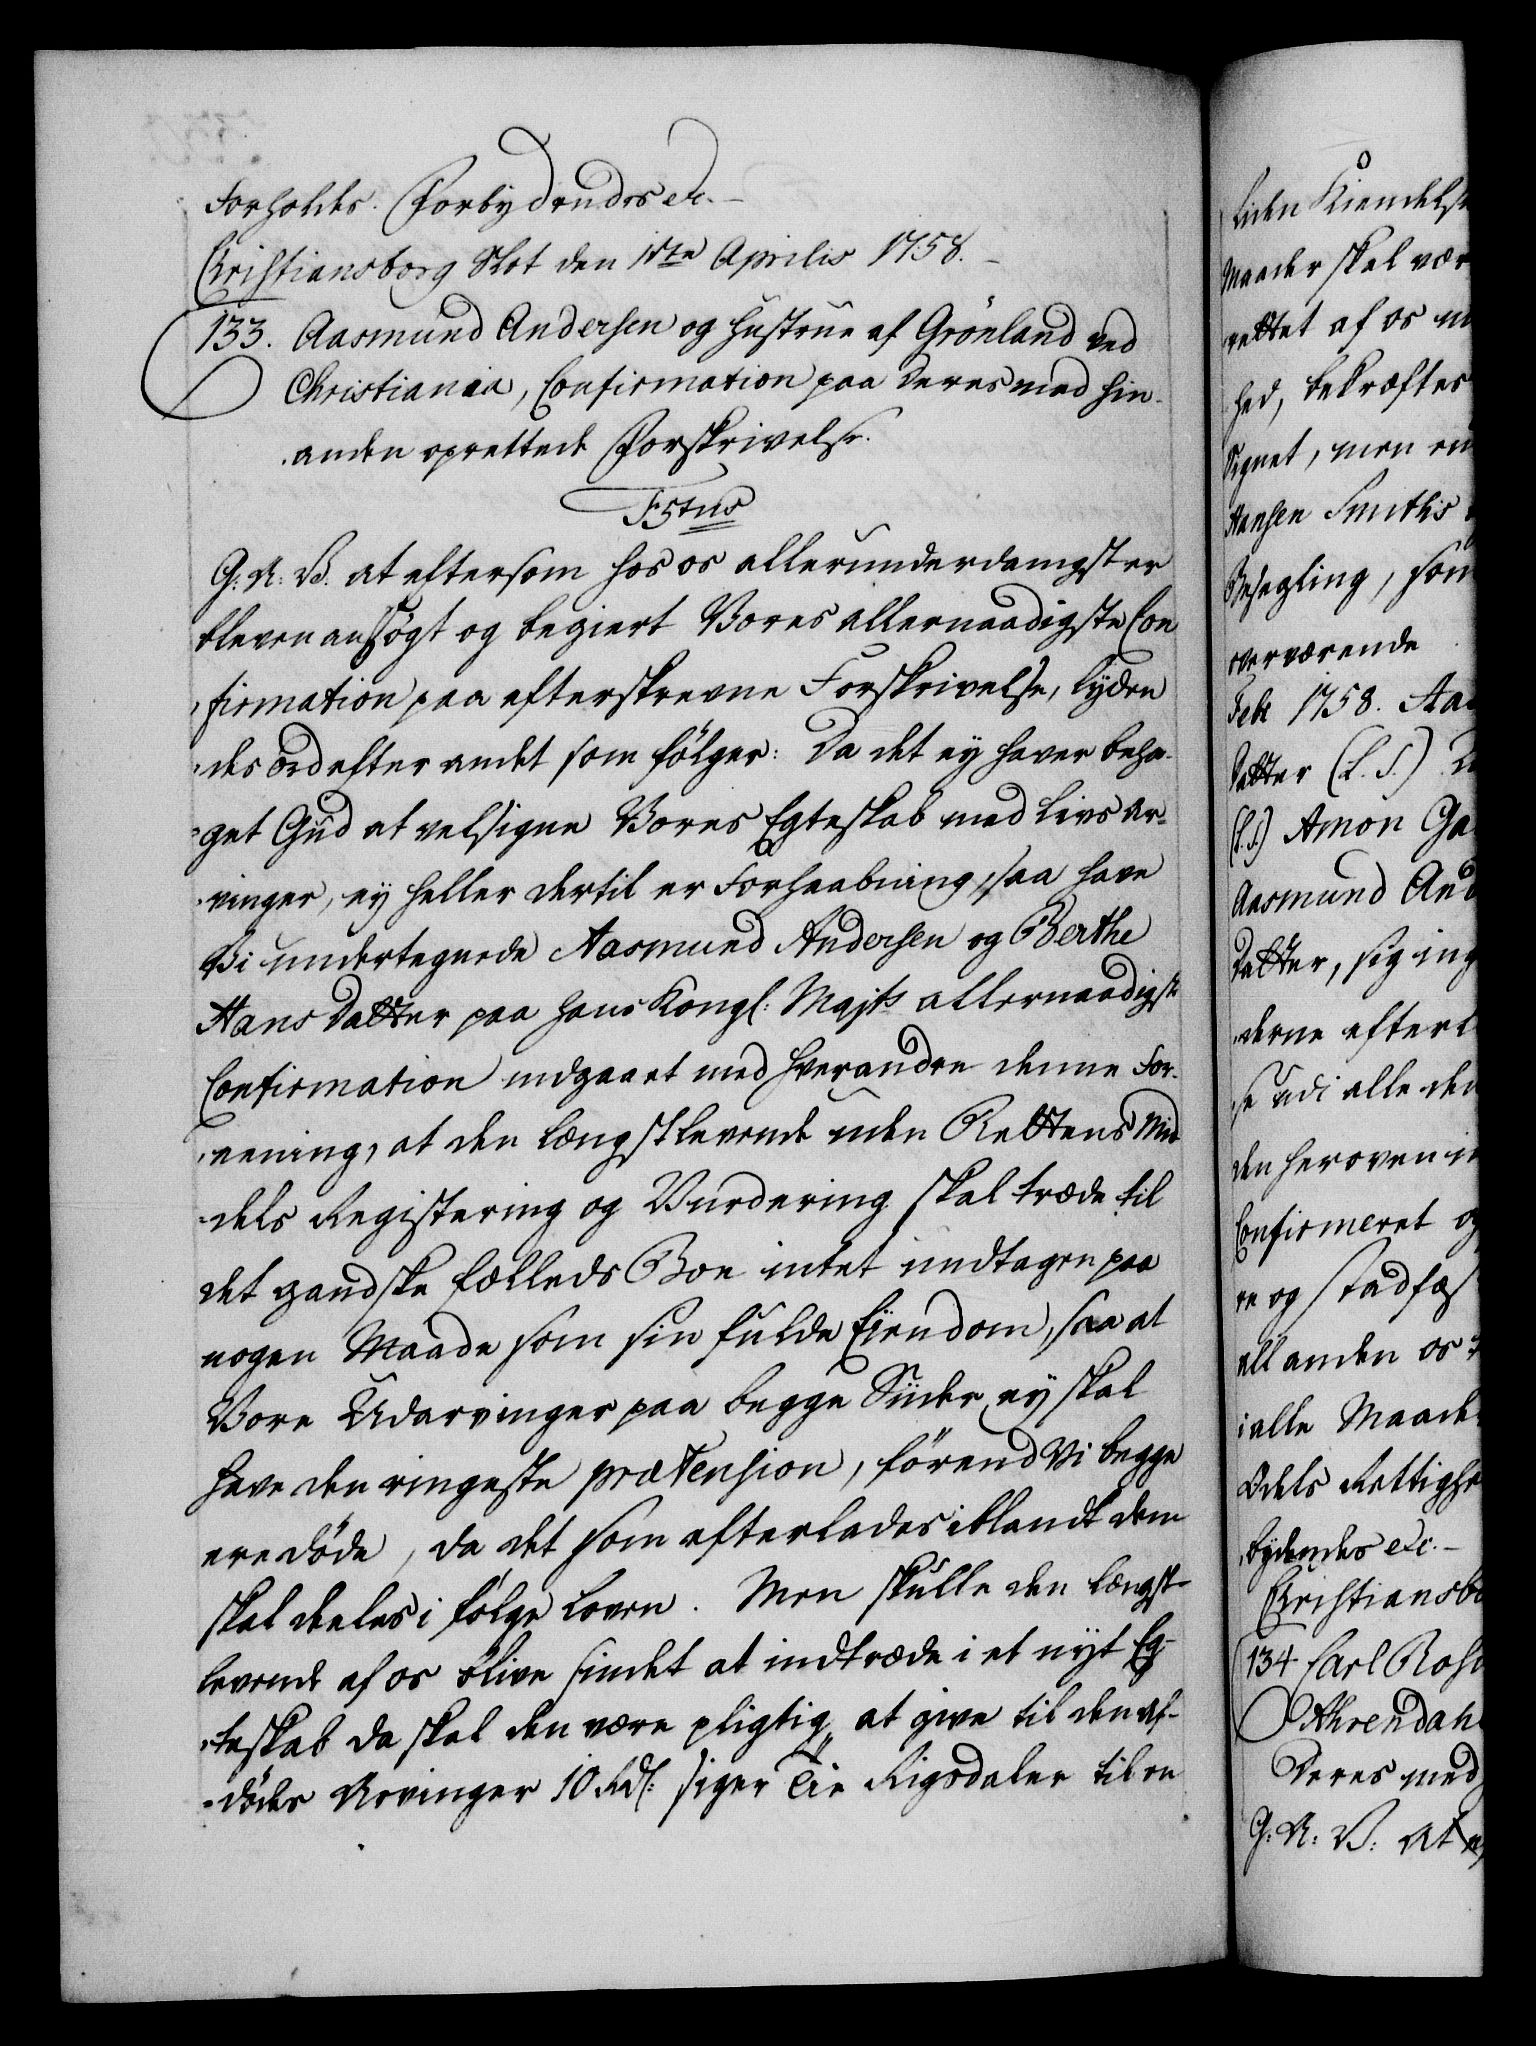 Forholdes. Forbydendes etc.
Christiansborg Slot den Aprilis 1758.
133. Aasmund Andersen og Hustrue af Grönland ved
Christiania, Confirmation paa deres med hin-
anden oprettede Forskrivelse.
F5tus
G: A: V. at eftersom hos os allerunderdanigst er
bleven ansögt og begiert Vores allernaadigste Con
firmation paa efterskrevne Forskrivelse, lyden
des ord efter andet som fölger: Da det ey haver beha-
get Gud at velsigne Vores Egteskab med Livs Ar-
vinger, ey heller dertil er Forhaabning, saa have
Vi undertegnede Aasmund Andersen og Berthe
Hans Datter paa Hans Kongl: Majts allernaadigste
Confirmation indgaaet med hverandre denne For-
eening, at den længstlevende uden Rettens Mid
dels Registering og Vurdering skal træde til
det gandske fælleds Boe intet undtagen paa
nogen Maade som sin fulde Eiendom, saa at
Vore Udarvinger paa begge Siider ey skal
have den ringeste prætension, förend Vi begge
ere döde, da det som efterlades iblandt dem
skal deeles i fölge Loven. Men skulle den længst-
levende af os blive sindet at indtræde i et nyt Eg-
teskab da skal den være pligtig at give til den af-
dödes Arvinger 10 Rdl: siger Tie Rigsdaler til en
liden Kiendelse
Maader skal vær
rettet af os
hed, bekræftes
Signet, men
Hansen Smiths
Besegling, som
overværende
Febr 1758. Aas
Datter (L. S.)
(L.S.) Amon Ga
Aasmund And
Datter, sig
derne efterl
se udi alle
den heroven
Confirmeret og
re og stadfæs
all anden os
i alle Maade
Odels Rettighe
bydendes etc.
Christiansbo
134. Carl Ros
Ahrendahl
Deres med
G: A: V: At